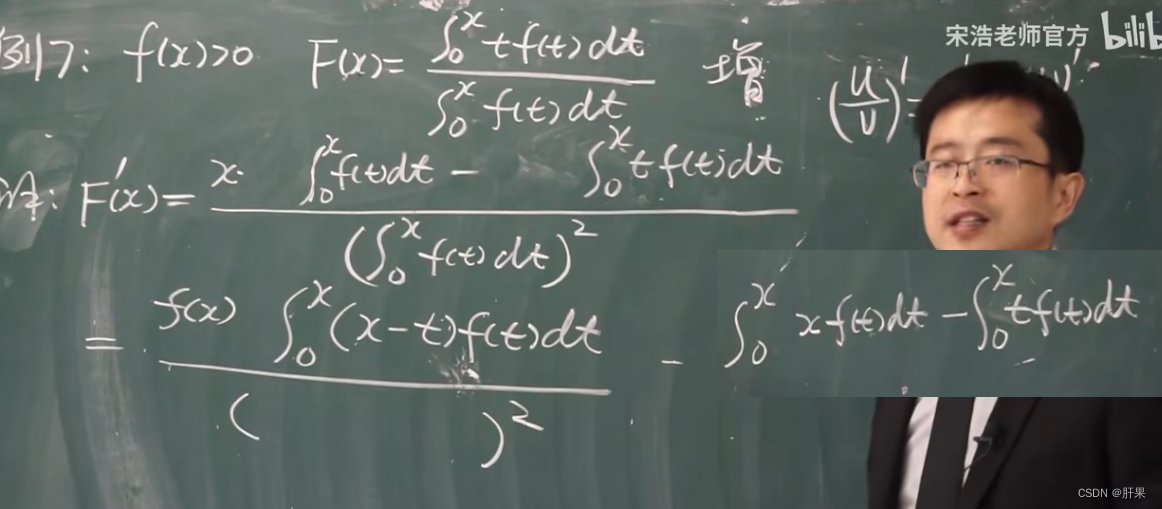 例17: f(x)>0 F(x)= ∫₀ˣ t f(t) dt / ∫₀ˣ f(t) dt 增
宋浩老师官方 bilib
(u/v)' =
F'(x)= x· ∫₀ˣ f(t)dt − ∫₀ˣ t f(t)dt / (∫₀ˣ f(t)dt)²
= f(x) ∫₀ˣ (x−t)f(t)dt / ( )² −
∫₀ˣ x f(t)dt − ∫₀ˣ t f(t)dt
CSDN @肝果